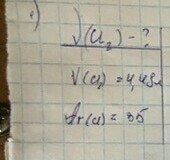 ν(Cl₂) - ?
V(Cl₂) = 4,48л
Ar(Cl) = 35